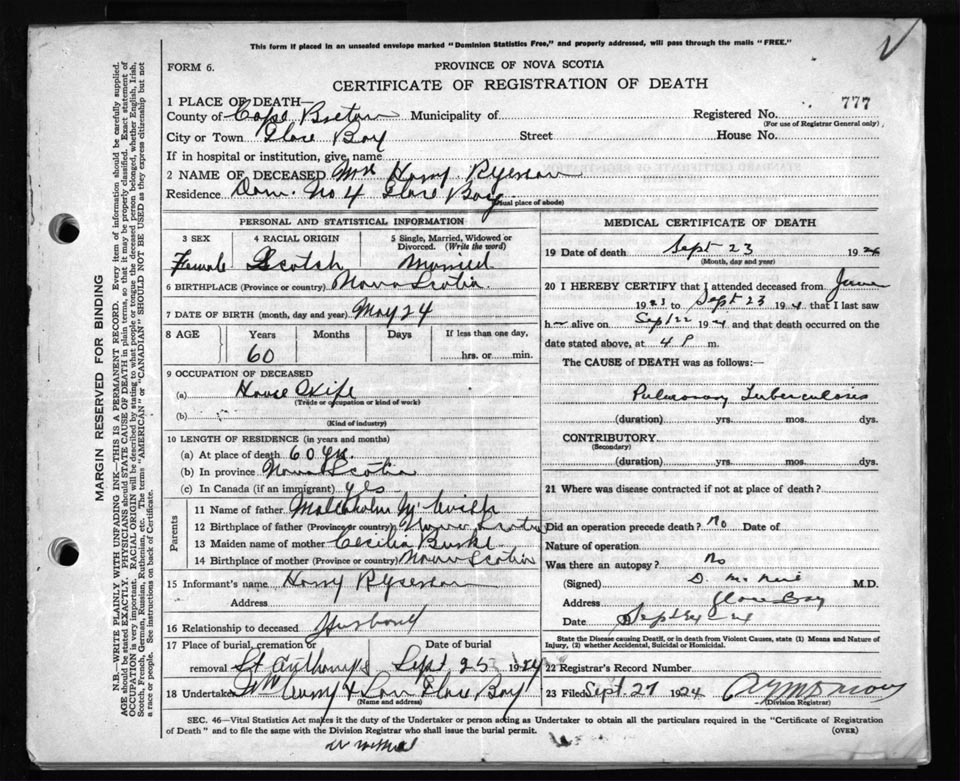 This form if placed in an unsealed envelope marked "Dominion Statistics Free," and properly addressed, will pass through the mails "FREE."
FORM 6.
PROVINCE OF NOVA SCOTIA
CERTIFICATE OF REGISTRATION OF DEATH
1 PLACE OF DEATH—
County of Cape Breton Municipality of Registered No. 777
(For use of Registrar General only)
City or Town Glace Bay Street House No.
If in hospital or institution, give name
2 NAME OF DECEASED Mrs Harry Ryerson
Residence Dom. No 4 Glace Bay
(Usual place of abode)
PERSONAL AND STATISTICAL INFORMATION
3 SEX 4 RACIAL ORIGIN 5 Single, Married, Widowed or Divorced. (Write the word)
Female Scotch Married
6 BIRTHPLACE (Province or country) Nova Scotia
7 DATE OF BIRTH (month, day and year) May 24
8 AGE Years Months Days If less than one day,
60 hrs. or min.
9 OCCUPATION OF DECEASED
(a) House Wife
(Trade or occupation or kind of work)
(b)
(Kind of industry)
10 LENGTH OF RESIDENCE (in years and months)
(a) At place of death 60 yrs.
(b) In province Nova Scotia
(c) In Canada (if an immigrant) yes
Parents
11 Name of father
12 Birthplace of father (Province or country) Nova Scotia
13 Maiden name of mother Cecilia Burke
14 Birthplace of mother (Province or country) Nova Scotia
15 Informant's name Harry Ryerson
Address
16 Relationship to deceased Husband
17 Place of burial, cremation or removal Date of burial
St Anthonys Sept 25 1924
18 Undertaker & Son Glace Bay
(Name and address)
MEDICAL CERTIFICATE OF DEATH
19 Date of death Sept 23 1924
(Month, day and year)
20 I HEREBY CERTIFY that I attended deceased from June
1923 to Sept 23 1924 that I last saw
h alive on Sep/22 1924 and that death occurred on
date stated above, at 4 P m.
The CAUSE of DEATH was as follows:
Pulmonary Tuberculosis
(duration) yrs. mos. dys.
CONTRIBUTORY
(Secondary)
(duration) yrs. mos. dys.
21 Where was disease contracted if not at place of death?
Did an operation precede death? No Date of
Nature of operation
Was there an autopsy? No
(Signed) D. McNeil M.D.
Address Glace Bay
Date
State the Disease causing Death, or in death from Violent Causes, state (1) Means and Nature of
Injury, (2) whether Accidental, Suicidal or Homicidal.
22 Registrar's Record Number
23 Filed Sept. 27 1924
(Division Registrar)
SEC. 46—Vital Statistics Act makes it the duty of the Undertaker or person acting as Undertaker to obtain all the particulars required in the "Certificate of Registration
of Death" and to file the same with the Division Registrar who shall issue the burial permit. (OVER)
MARGIN RESERVED FOR BINDING
N.B.—WRITE PLAINLY WITH UNFADING INK—THIS IS A PERMANENT RECORD. Every item of information should be carefully supplied.
AGE should be stated EXACTLY. PHYSICIANS should STATE CAUSE OF DEATH in plain terms, so that it may be properly classified. Exact statement of
OCCUPATION is very important. RACIAL ORIGIN will be described by stating to what people or tongue the deceased person belonged, whether English, Irish,
Scotch, French, German, Russian, Ruthenian, etc. The terms "AMERICAN" or "CANADIAN" SHOULD NOT BE USED as they express citizenship but not
a race or people. See instructions on back of Certificate.